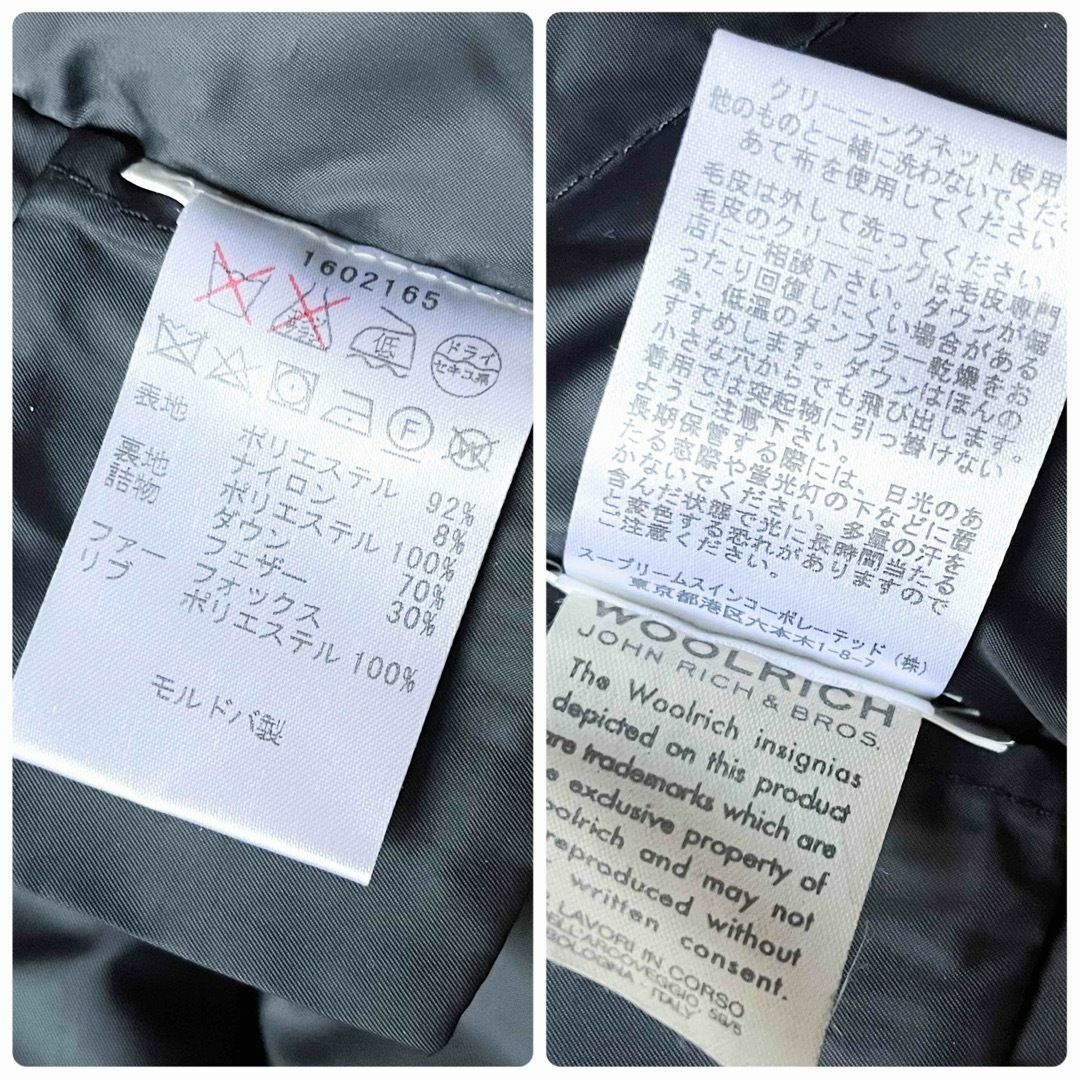 1602165
低
ドライ
セキユ系
F
W
表地 ポリエステル 92%
ナイロン 8%
裏地 ポリエステル 100%
詰物 ダウン 70%
フェザー 30%
ファー フォックス
リブ ポリエステル 100%
モルドバ製
クリーニングネット使用
他のものと一緒に洗わないでくださ
あて布を使用してください
毛皮は外して洗ってください。
毛皮のクリーニングは毛皮専門
店にご相談下さい。ダウンが偏
ったり回復しにくい場合がある
為、低温のタンブラー乾燥をお
すすめします。ダウンはほんの
小さな穴からでも飛び出します。
着用では突起物に引っ掛けない
ようご注意下さい。
長期保管する際には、日光のあ
たる窓際や蛍光灯の下などに置
かないでください。多量の汗を
含んだ状態で光に長時間当たる
と変色する恐れがありますので
ご注意ください。
スープリームスインコーポレーテッド(株)
東京都港区六本木1-8-7
WOOLRICH
JOHN RICH & BROS.
The Woolrich insignias
depicted on this product
are trademarks which are
exclusive property of
oolrich and may not
reproduced without
written consent.
LAVORI IN CORSO
ELL'ARCOVEGGIO, 59/5
BOLOGNA - ITALY